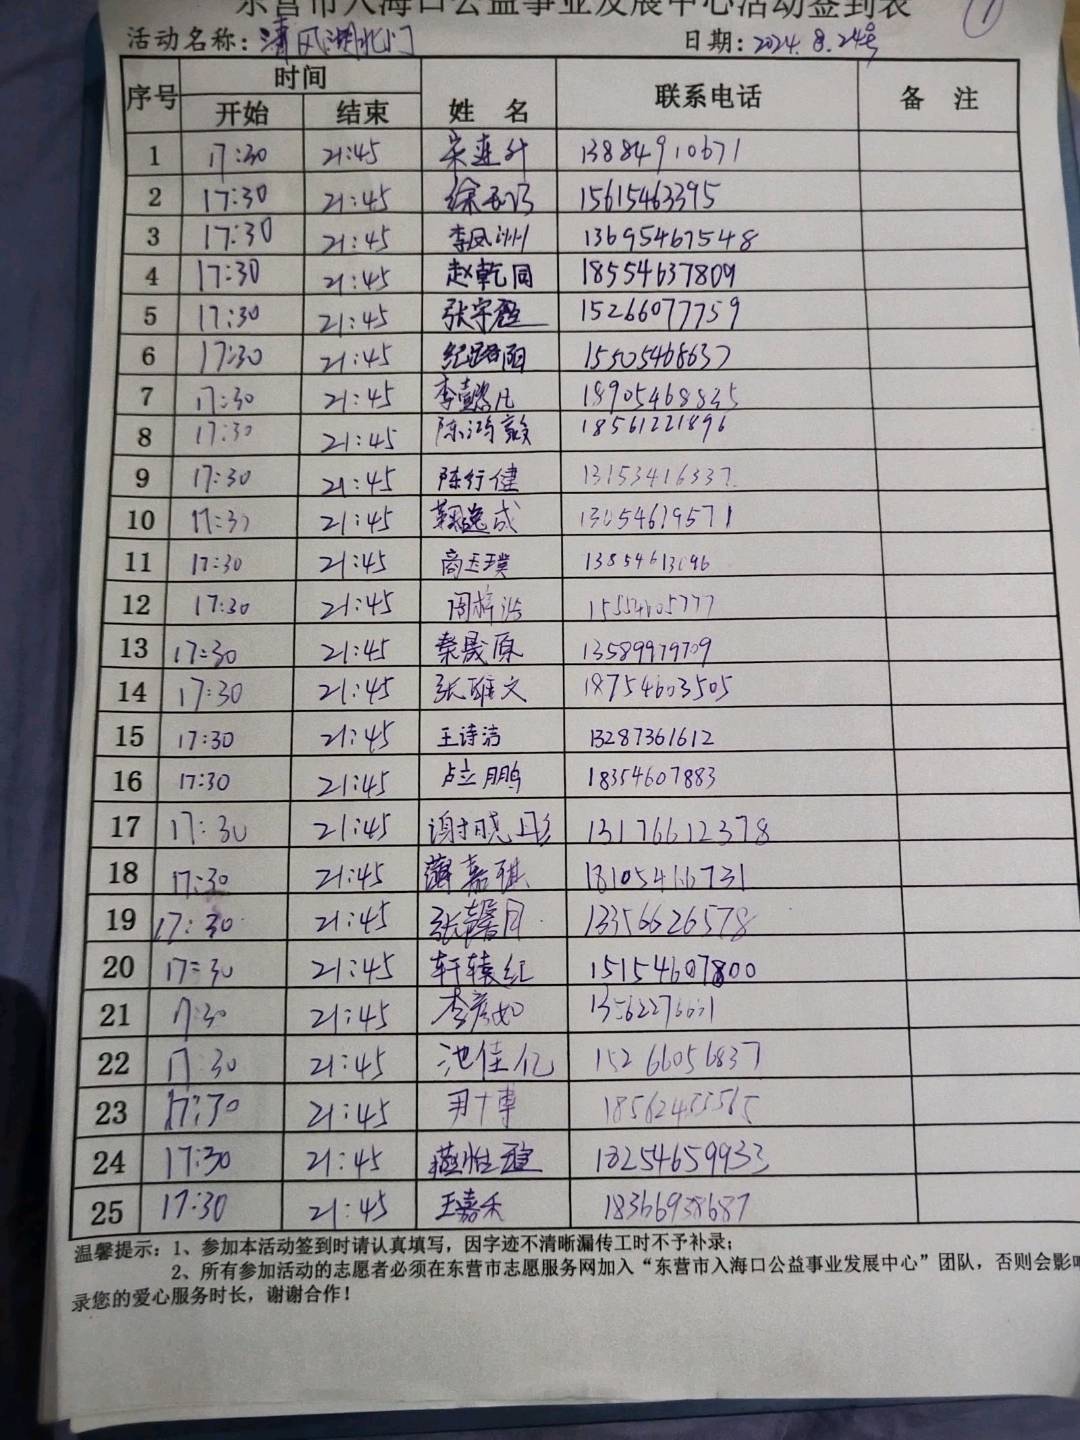 东营市入海口公益事业发展中心活动签到表 1
活动名称：清风湖北门 日期：2024.8.24号
序号 时间 姓 名 联系电话 备 注
开始 结束
1 17:30 21:45 宋连升 13884910671
2 17:30 21:45 徐 15615463395
3 17:30 21:45 李凤洲 13695467548
4 17:30 21:45 赵乾同 18554637809
5 17:30 21:45 张宇 15266077759
6 17:30 21:45 纪璐阳 15505468637
7 17:30 21:45 李懿凡 18905468835
8 17:30 21:45 陈鸿毅 18561221896
9 17:30 21:45 陈行健 13153416337
10 17:30 21:45 逸成 13054619571
11 17:30 21:45 商玉璞 13854613096
12 17:30 21:45 周梓浩 15554605777
13 17:30 21:45 秦晟原 13589979709
14 17:30 21:45 张雅文 18754603505
15 17:30 21:45 王诗洁 13287361612
16 17:30 21:45 卢立鹏 18354607883
17 17:30 21:45 谢晓彤 13176612378
18 17:30 21:45 蔺嘉琪
19 17:30 21:45 张馨月 13356626578
20 17:30 21:45 轩辕红 15154607800
21 17:30 21:45 李彦如
22 17:30 21:45 池佳亿 15266056837
23 17:30 21:45 尹十博
24 17:30 21:45 18254659933
25 17:30 21:45 王嘉禾 18366938687
温馨提示：1、参加本活动签到时请认真填写，因字迹不清晰漏传工时不予补录；
2、所有参加活动的志愿者必须在东营市志愿服务网加入“东营市入海口公益事业发展中心”团队，否则会影响
录您的爱心服务时长，谢谢合作！